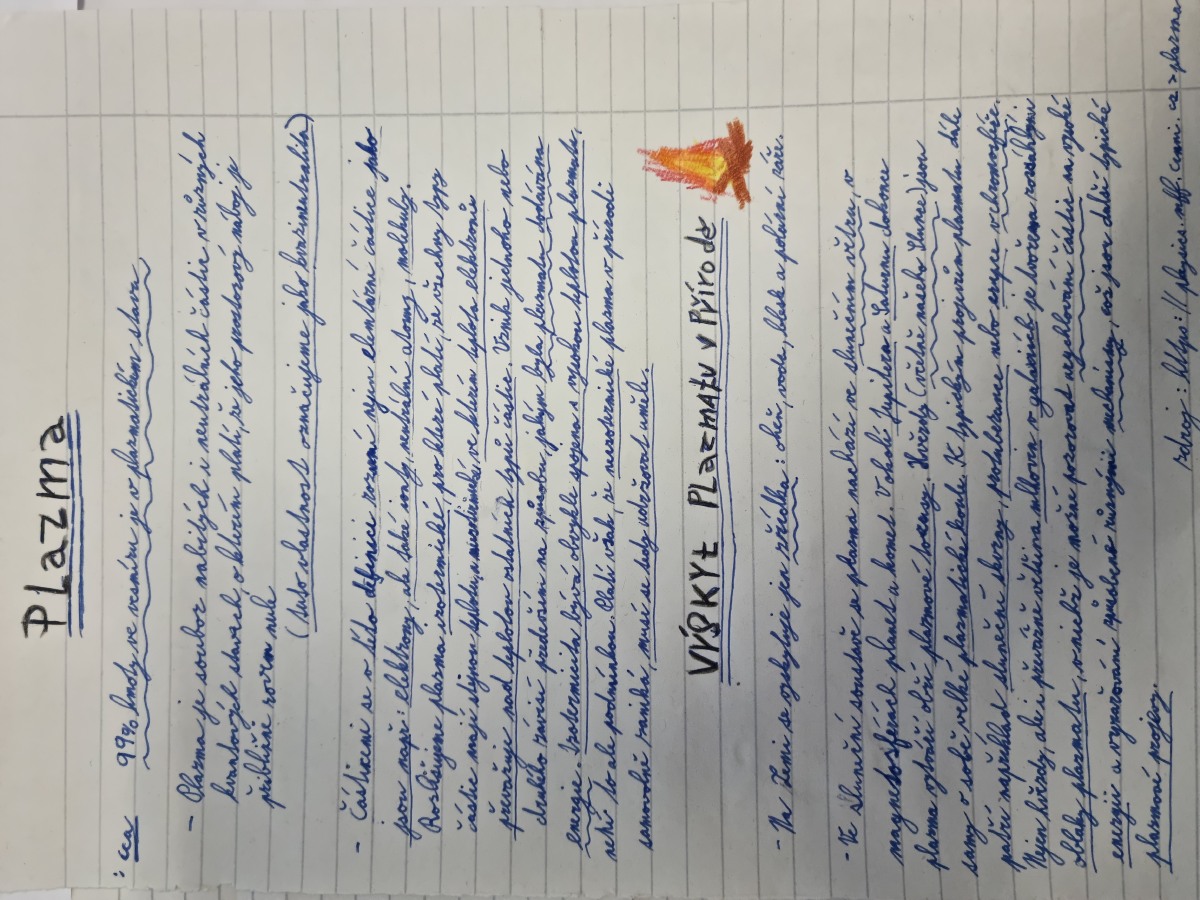 PLazma
: cca 99% hmoty ve vesmíru je v plazmatickém stavu
- Plazma je soubor nabitých i neutrálních částic v různých
kvantových stavech, o kterém platí, že jeho prostorový náboj je
přibližně roven nule
(tuto vlastnost označujeme jako kvazineutralita)
- Částicemi se v této definici rozumí nejen elementární částice jako
jsou např: elektrony, ale také ionty, neutrální atomy, molekuly.
Rozlišujeme plazma izotermické, pro které platí, že všechny typy
částic mají stejnou teplotu, neizotermické ve kterém teplota elektronů
převažuje nad teplotou ostatních typů částic. Vznik jednoho nebo
druhého závisí především na způsobu jakým byla plazmatu dodávána
energie. Izotermicita bývá obvykle spojena s vysokou teplotou plazmatu,
není to ale podmínkou. Platí však, že neizotermické plazma v přírodě
samovolně zaniká, musí se tedy udržovat uměle.
VÝSKYt PLazmatu v Přírodě
- Na Zemi se vyskytuje jen zřídka: oheň, voda, blesk a polární záře.
- Ve sluneční soustavě se plazma nachází ve slunečním větru, v
magnetosférách planet a komet. V okolí Jupitera a Saturnu dokone
plazma vytváří obří plazmové toroidy. Hvězdy (včetně našeho Slunce) jsou
samy o sobě velké plazmatické koule. K typickým projevům plazmatu dále
patří například sluneční skvrny, protuberance nebo erupce v chromosféře.
Nejen hvězdy, ale i převážně většina mlhovin v galaxiích je tvořena rozsáhlými
oblaky plazmatu, v nichž je možné pozorovat urychlování částic na vysoké
energie a vyzařování způsobené různými mechanismy, což jsou další typické
plazmové projevy.
zdroj: https://physics.mff.cuni.cz > plazma